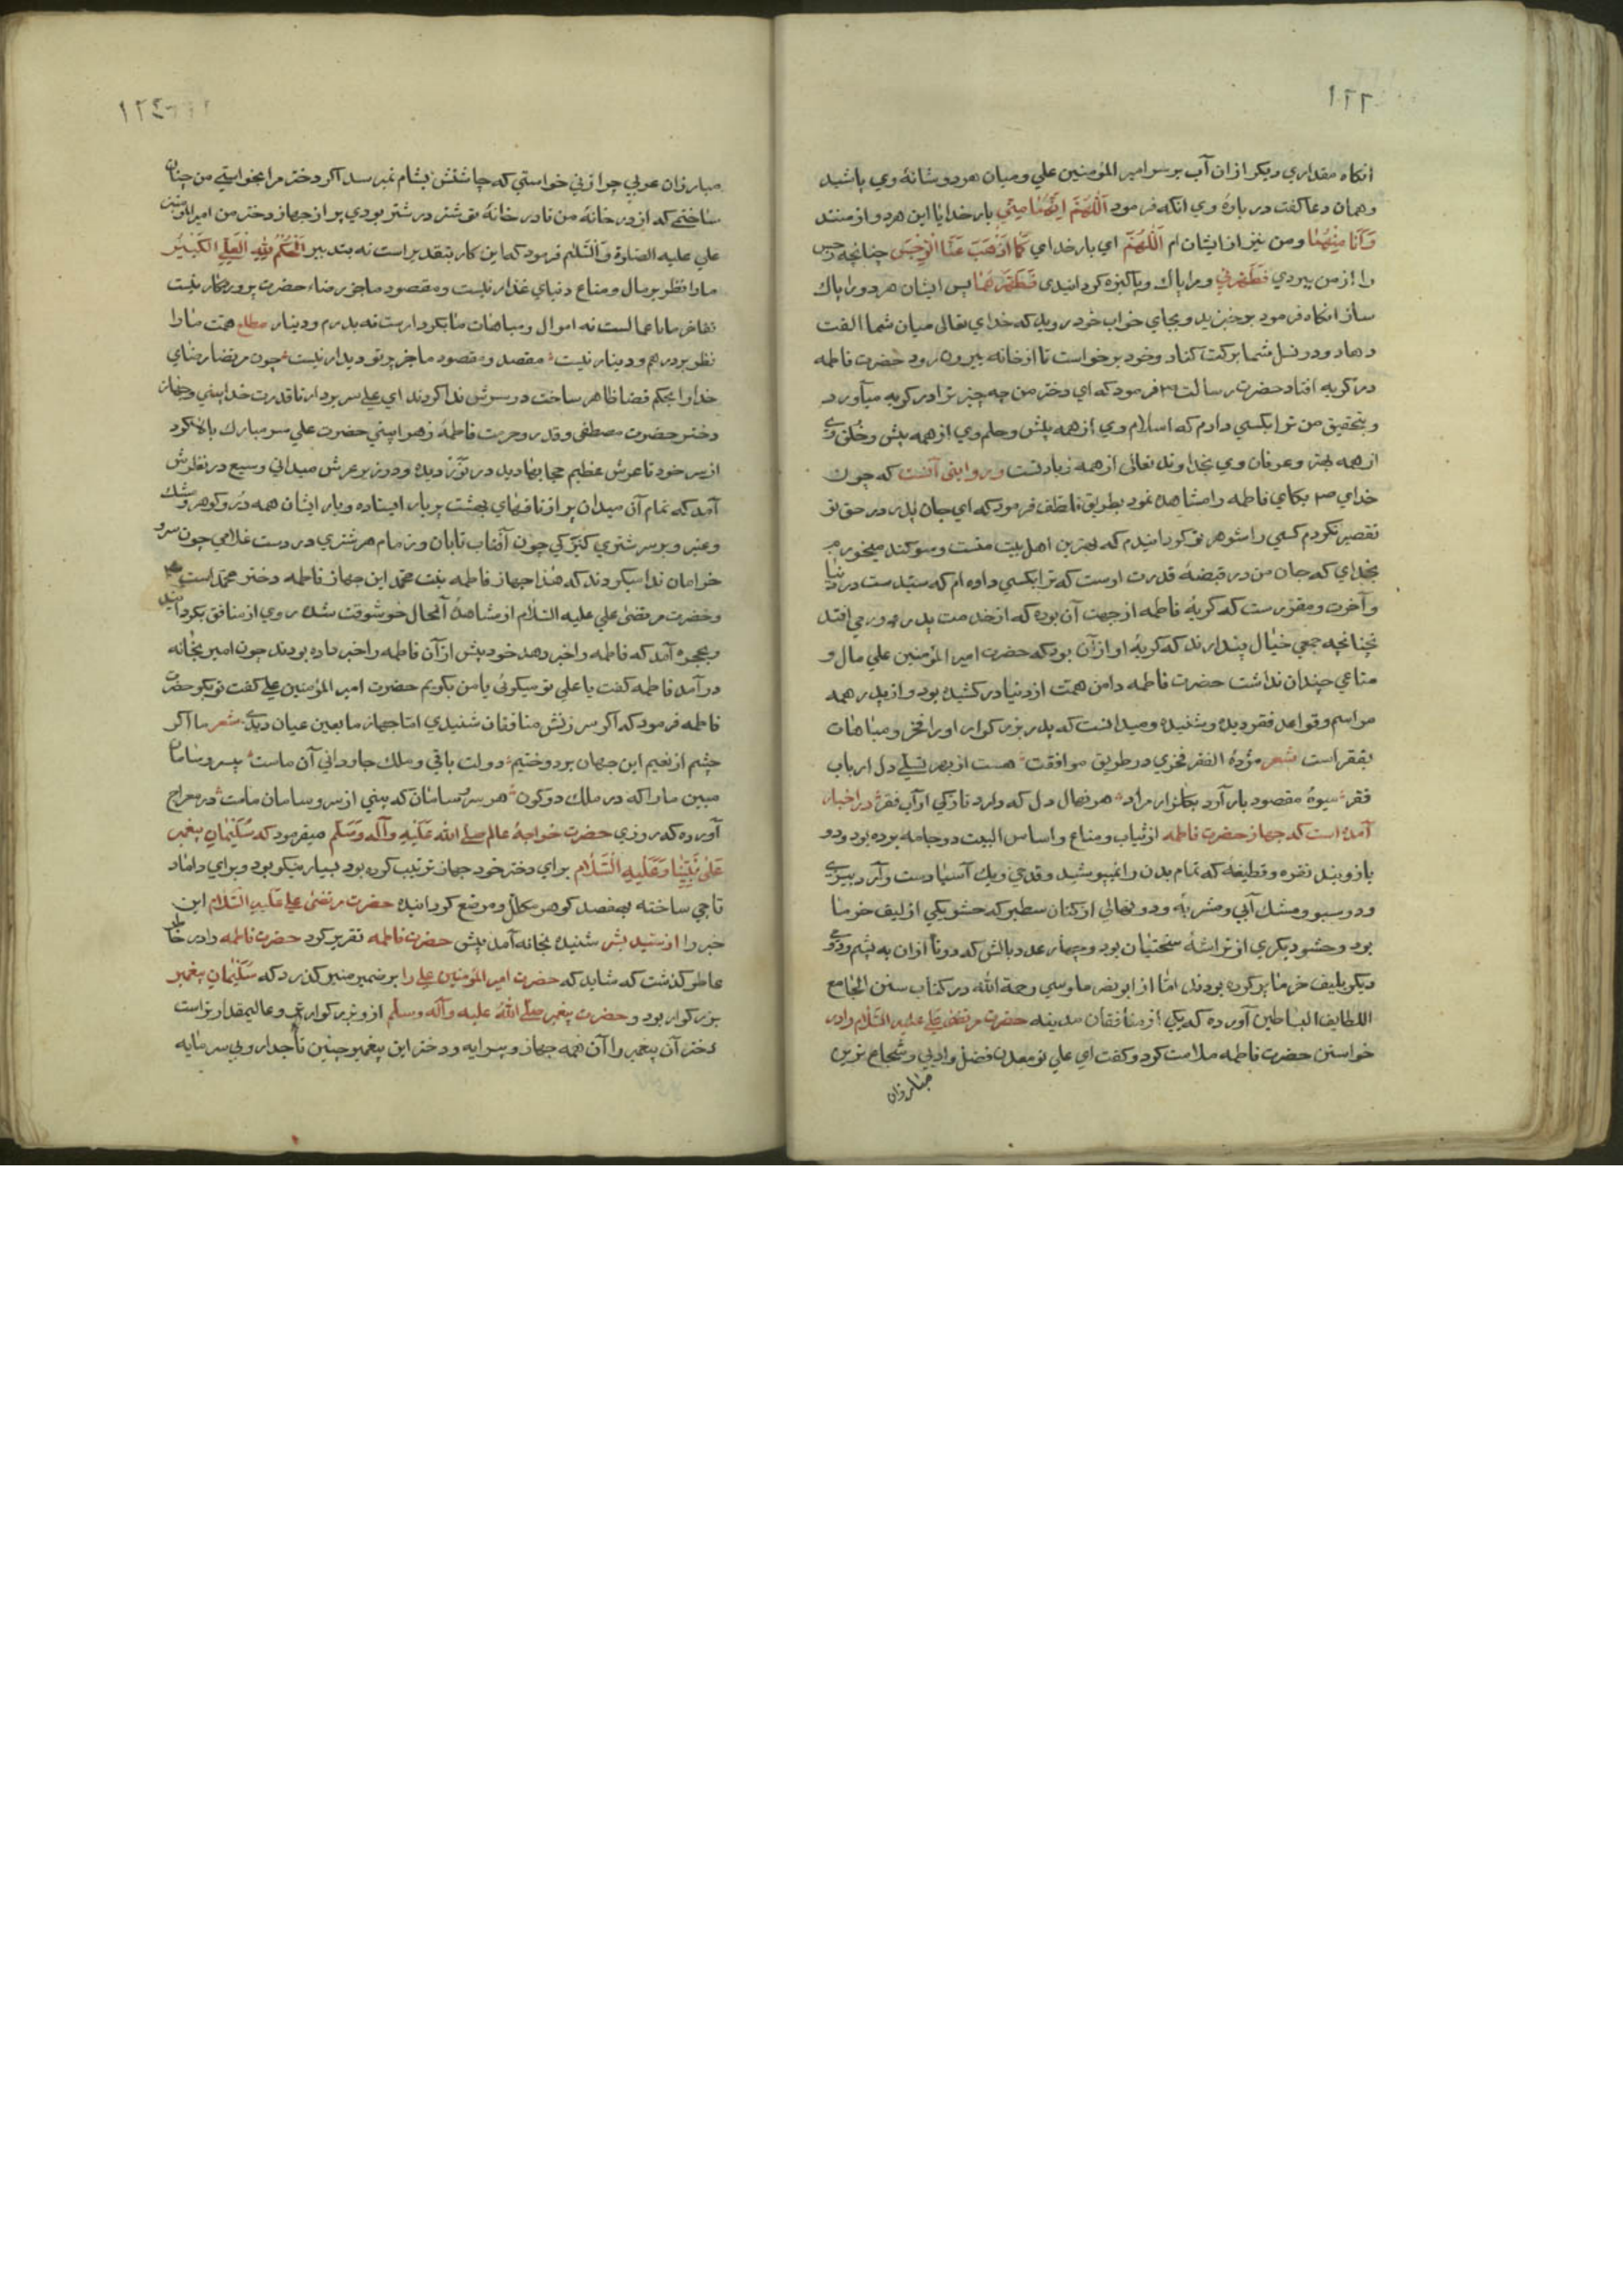 ۱۲۲
انکاه مقداري دیکر ازان آب بر سر امیر المؤمنین علي و میان هر دو شانهٔ وي پاشید
وهمان دعا کفت در بارهٔ وي انکه فرمود اَللّٰهُمَّ اِنَّهُمَا مِنّي بار خدایا این هر دو از منند
وَاَنَا مِنْهُمَا ومن نیز از ایشان ام اَللّٰهُمَّ اي بار خداي کَمَا اَذْهَبْتَ عَنَّا الرِّجْسَ چنانچه رجس
را از من ببردي فَطَهَّرْتَني و مرا پاك و پاکیزه کردانیدي فَطَهِّرْهُمَا پس ایشان هر دو را پاك
ساز انکاه فرمود برخیزید و بجاي خواب خود روید که خداي تعالی میان شما الفت
دهاد و در نسل شما برکت کناد وخود برخواست تا از خانه بیرون رود حضرت فاطمه
در کریه افتاد حضرت رسالت فرمود که اي دختر من چه چیز ترا در کریه میآورد
و بتحقیق من ترا بکسي دادم که اسلام وي از همه پیش وحلم وي از همه بیش وخلق وي
از همه بهتر وعرفان وي بخداوند تعالی از همه زیادتست و روایتی آنست که چون
خداي بکاي فاطمه را مشاهده نمود بطریق تلطف فرمود که اي جان پدر در حق تو
تقصیر نکردم کسي را شوهر تو کردانیدم که بهترین اهل بیت منست و سوکند میخورم
بخداي که جان من در قبضهٔ قدرت اوست که ترا بکسي داده ام که سیدست در دنیا
و آخرت و مقررست که کریهٔ فاطمه از جهت آن بوده که از خدمت پدر دور مي افتد
چنانچه جمعي خیال پندارند که کریهٔ او از آن بود که حضرت امیر المؤمنین علي مال و
متاعي چندان نداشت حضرت فاطمه دامن همت از دنیا در کشیده بود و از پدر همه
مراسم و قواعد فقر دیده و شنیده و میدانست که پدر بزرکوار او را فخر و مباهات
بفقر است شعر مژدهٔ الفقر فخري در طریق موافقت هست از بهر تسلي دل ارباب
فقر میوهٔ مقصود بار آرد بکلزار مراد هر نهال دل که دارد تازکي از آب فقر در اخبار
آمده است که جهاز حضرت فاطمه از ثیاب و متاع و اساس البیت دو جامه بوده بود و دو
بازوبند نقره و قطیفهٔ که تمام بدن را نمیپوشید و قدحي ویك آسیا دست وآرد بیزي
و دو سبو و مشك آبي و مشربهٔ و دو نهالي از کتان سطبر که حشو یکي از لیف خرما
بود وحشو دیکري از تراشهٔ سختیان بود وچهار عدد بالش که دو تا ازان به پشم و دو
دیکر بلیف خرما پر کرده بودند اما از ابو نصر ماوسي رحمة الله در کتاب سنن الجامع
اللطایف البساطین آورده که یکي از منافقان مدینه حضرت مرتضی علي علیه السلام را در
خواستن حضرت فاطمه ملامت کرد و کفت اي علي تو معدن فضل و ادبي و شجاع ترین
مبارزان
۱۲۳
مبارزان عربي چرا زني خواستي که چاشتش بشام نمیرسد اکر دختر مرا بخواستي من چنان
ساختمي که از در خانهٔ من تا در خانهٔ تو شتر در شتر بودي پر از جهاز دختر من امیر المؤمنین
علي علیه الصلوة والسلام فرمود که این کار بتقدیر است نه بتدبیر اَلْحُکْمُ لِلّٰهِ الْعَلِيِّ الْکَبِیْرِ
ما را نظر بر مال و متاع دنیاي غدار نیست و مقصود ما جز رضاء حضرت پروردکار نیست
تفاخر ما باعمالست نه اموال و مباهات ما بکردارست نه بدرم و دینار مطلع همت ما را
نظر بر درهم و دینار نیست مقصد و مقصود ما جز پرتو دیدار نیست چون مرتضا رضاي
خدا را بحکم قضا ظاهر ساخت در سرش ندا کردند اي علي سر بردار تا قدرت خدا بیني وجهاز
دختر حضرت مصطفی و قدر و حرمت فاطمهٔ زهرا بیني حضرت علي سر مبارك بالا کرد
از سر خود تا عرش عظیم حجابها دید در نور دیده و در زیر عرش میداني وسیع در نظرش
آمد که تمام آن میدان پر از ناقهاي بهشت پر بار ایستاده و بار ایشان همه در و کوهر و مشك
وعنبر و بر سر شتري کنیزکي چون آفتاب تابان و زمام هر شتري در دست غلامي چون سرو
خرامان ندا میکردند که هٰذا جهاز فاطمه بنت محمد این جهاز فاطمه دختر محمد است
وحضرت مرتضی علي علیه السلام از مشاهدهٔ آنحال خوشوقت شده روي از منافق بکردانید
وبحجره آمد که فاطمه را خبر دهد خود پیش از آن فاطمه را خبر داده بودند چون امیر بخانه
در آمد فاطمه کفت یا علي تو میکوئي یا من بکویم حضرت امیر المؤمنین علي کفت تو بکو حضرت
فاطمه فرمود که اکر سرزنش منافقان شنیدي اما جهاز ما بعین عیان دیدي شعر ما اکر
چشم از نعیم این جهان بردوختیم دولت باقي و ملك جاوداني آن ماست بیسر و سامان
مبین ما را که در ملك دو کون هر سر و سامان که بیني از سر و سامان ماست در معراج
آورده که روزي حضرت خواجهٔ عالم صلي الله علیه وآله وسلم میفرمود که سلیمان پیغمبر
علی نبینا وعلیه السلام براي دختر خود جهاز ترتیب کرده بود بسیار نیکو بود و براي داماد
تاجي ساخته بهفصد کوهر مکلل و مرصع کردانیده حضرت مرتضی علي علیه السلام این
خبر را از سید بشر شنیده بخانه آمد پیش حضرت فاطمه تقریر کرد حضرت فاطمه را در خاطر
عاطر کذشت که شاید که حضرت امیر المؤمنین علي را بر ضمیر منیر کذرد که سلیمان پیغمبر
بزرکوار بود و حضرت پیغمبر صلي الله علیه وآله وسلم ازو بزرکوارتر و عالیمقدارتر است
دختر آن پیغمبر را آن همه جهاز و پیرایه و دختر این پیغمبر چنین تاجدار و بي سرمایه